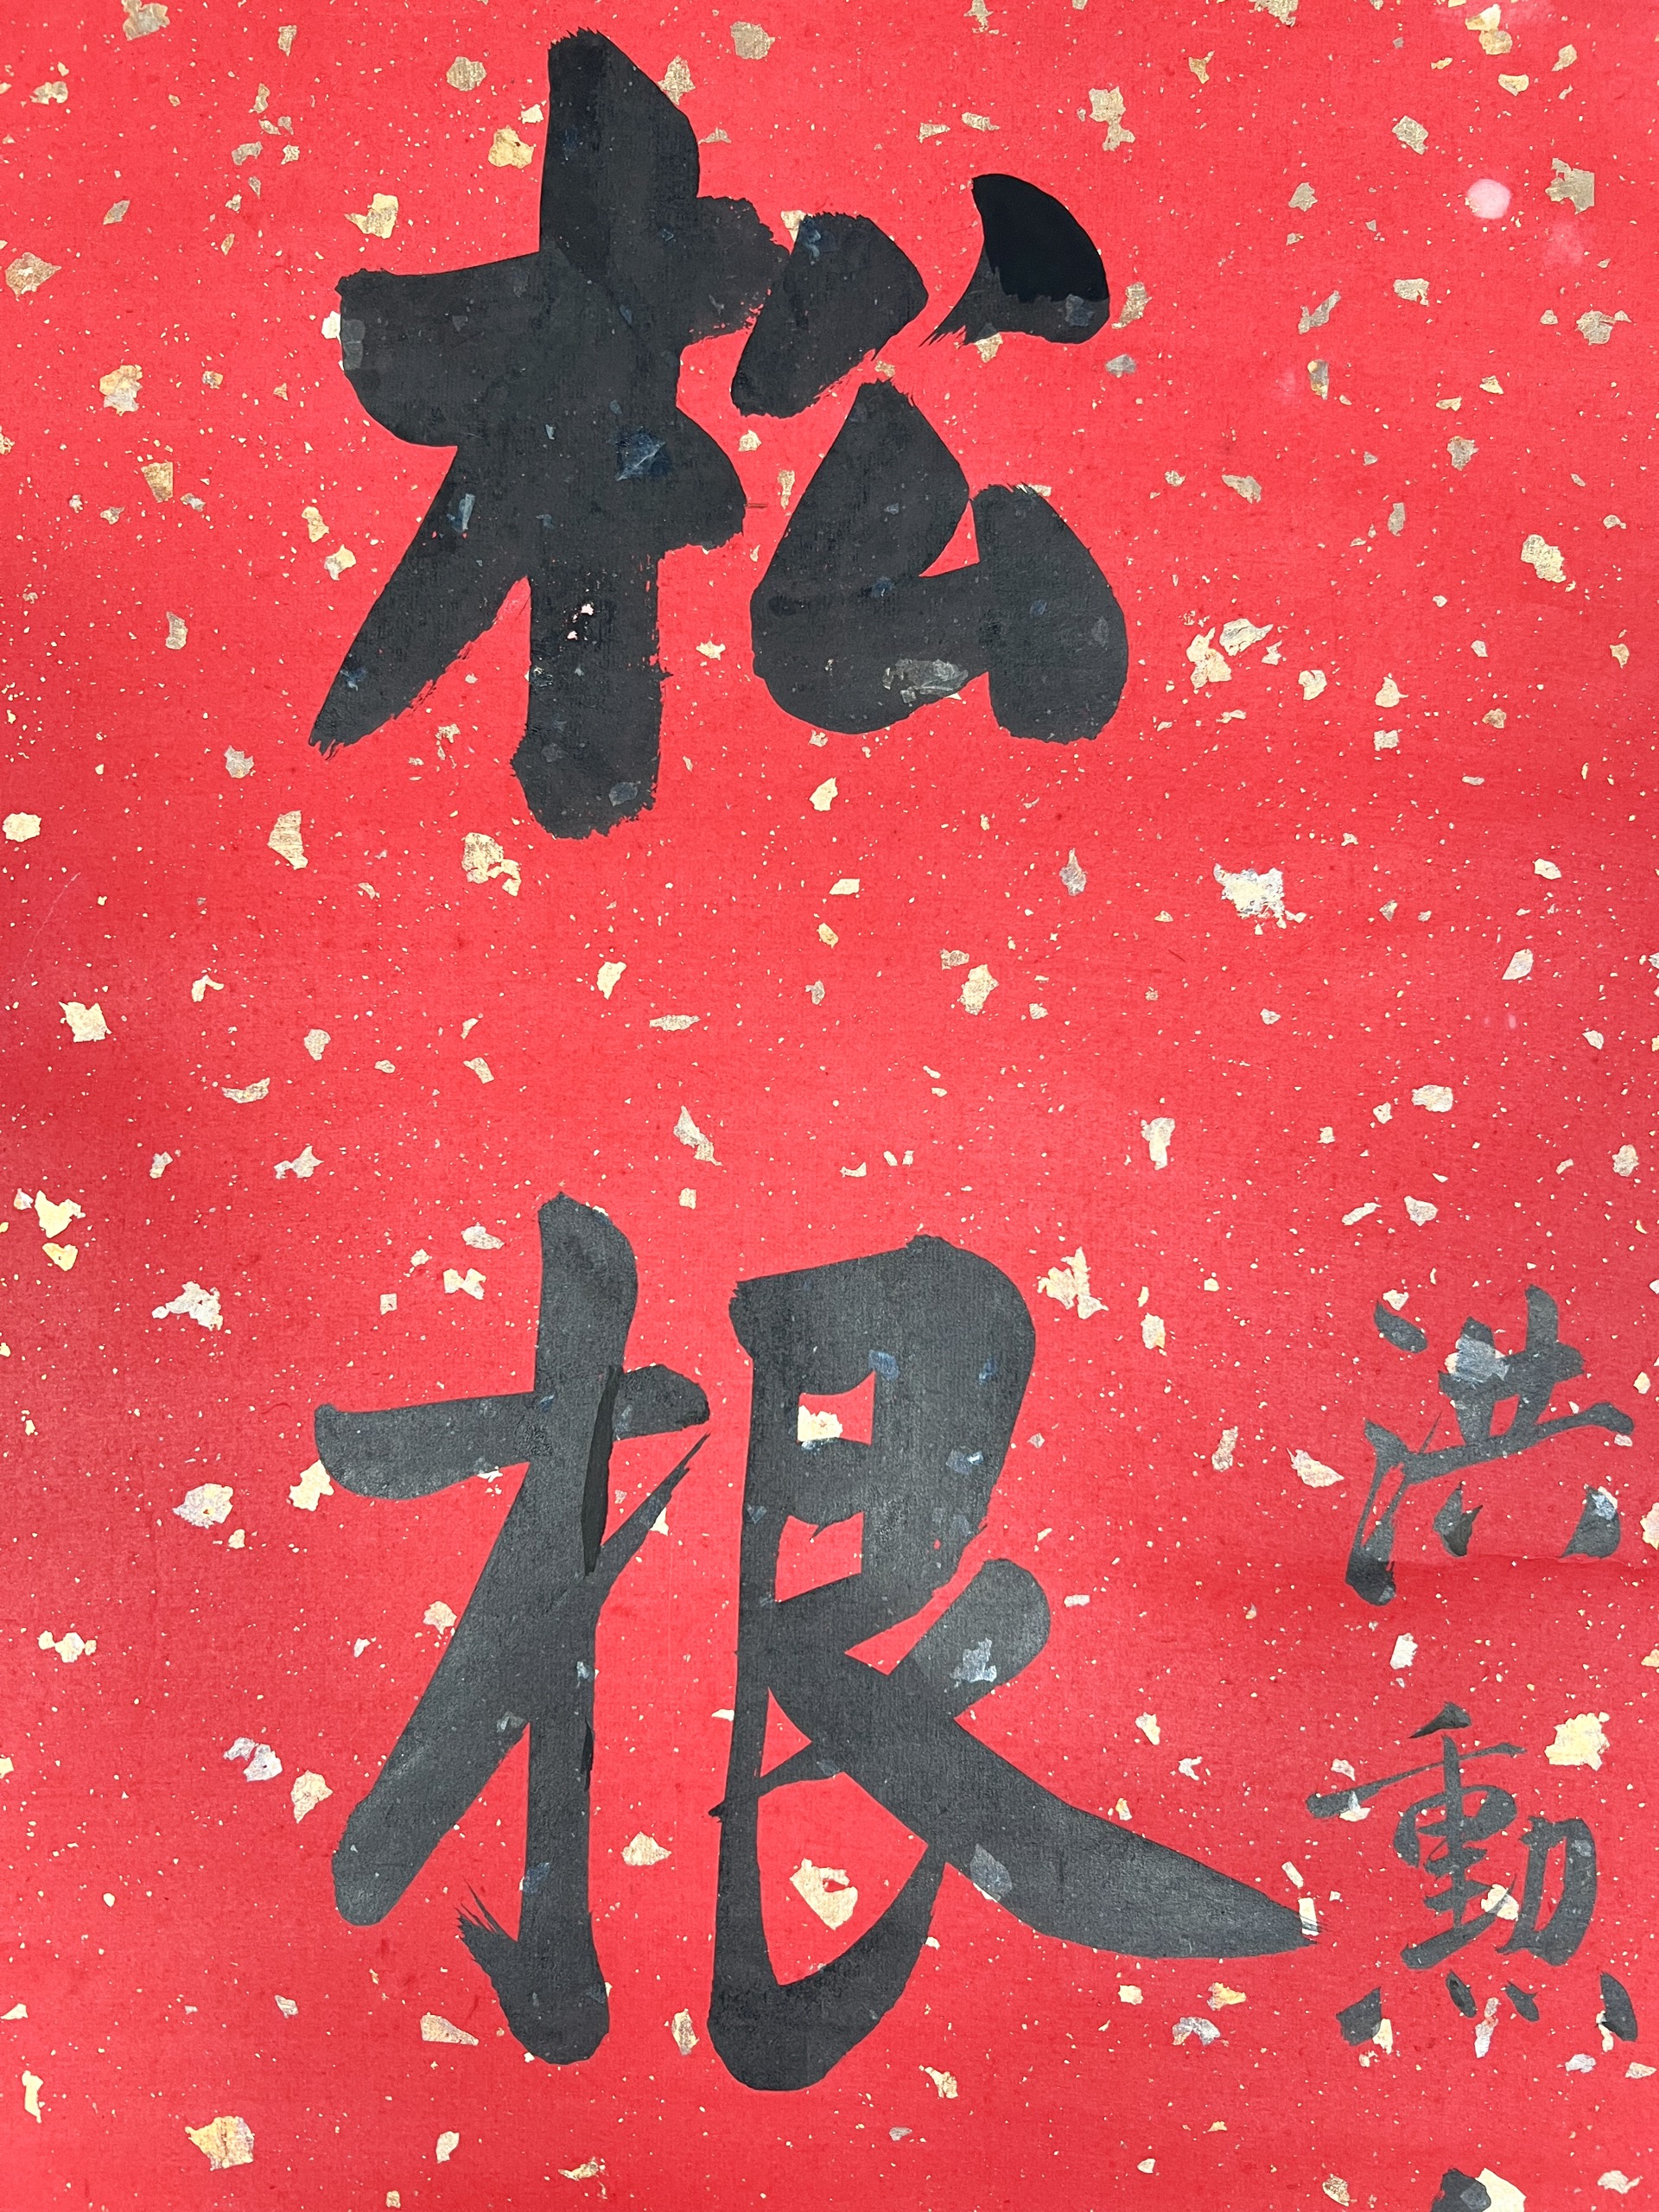 洪勳
松根